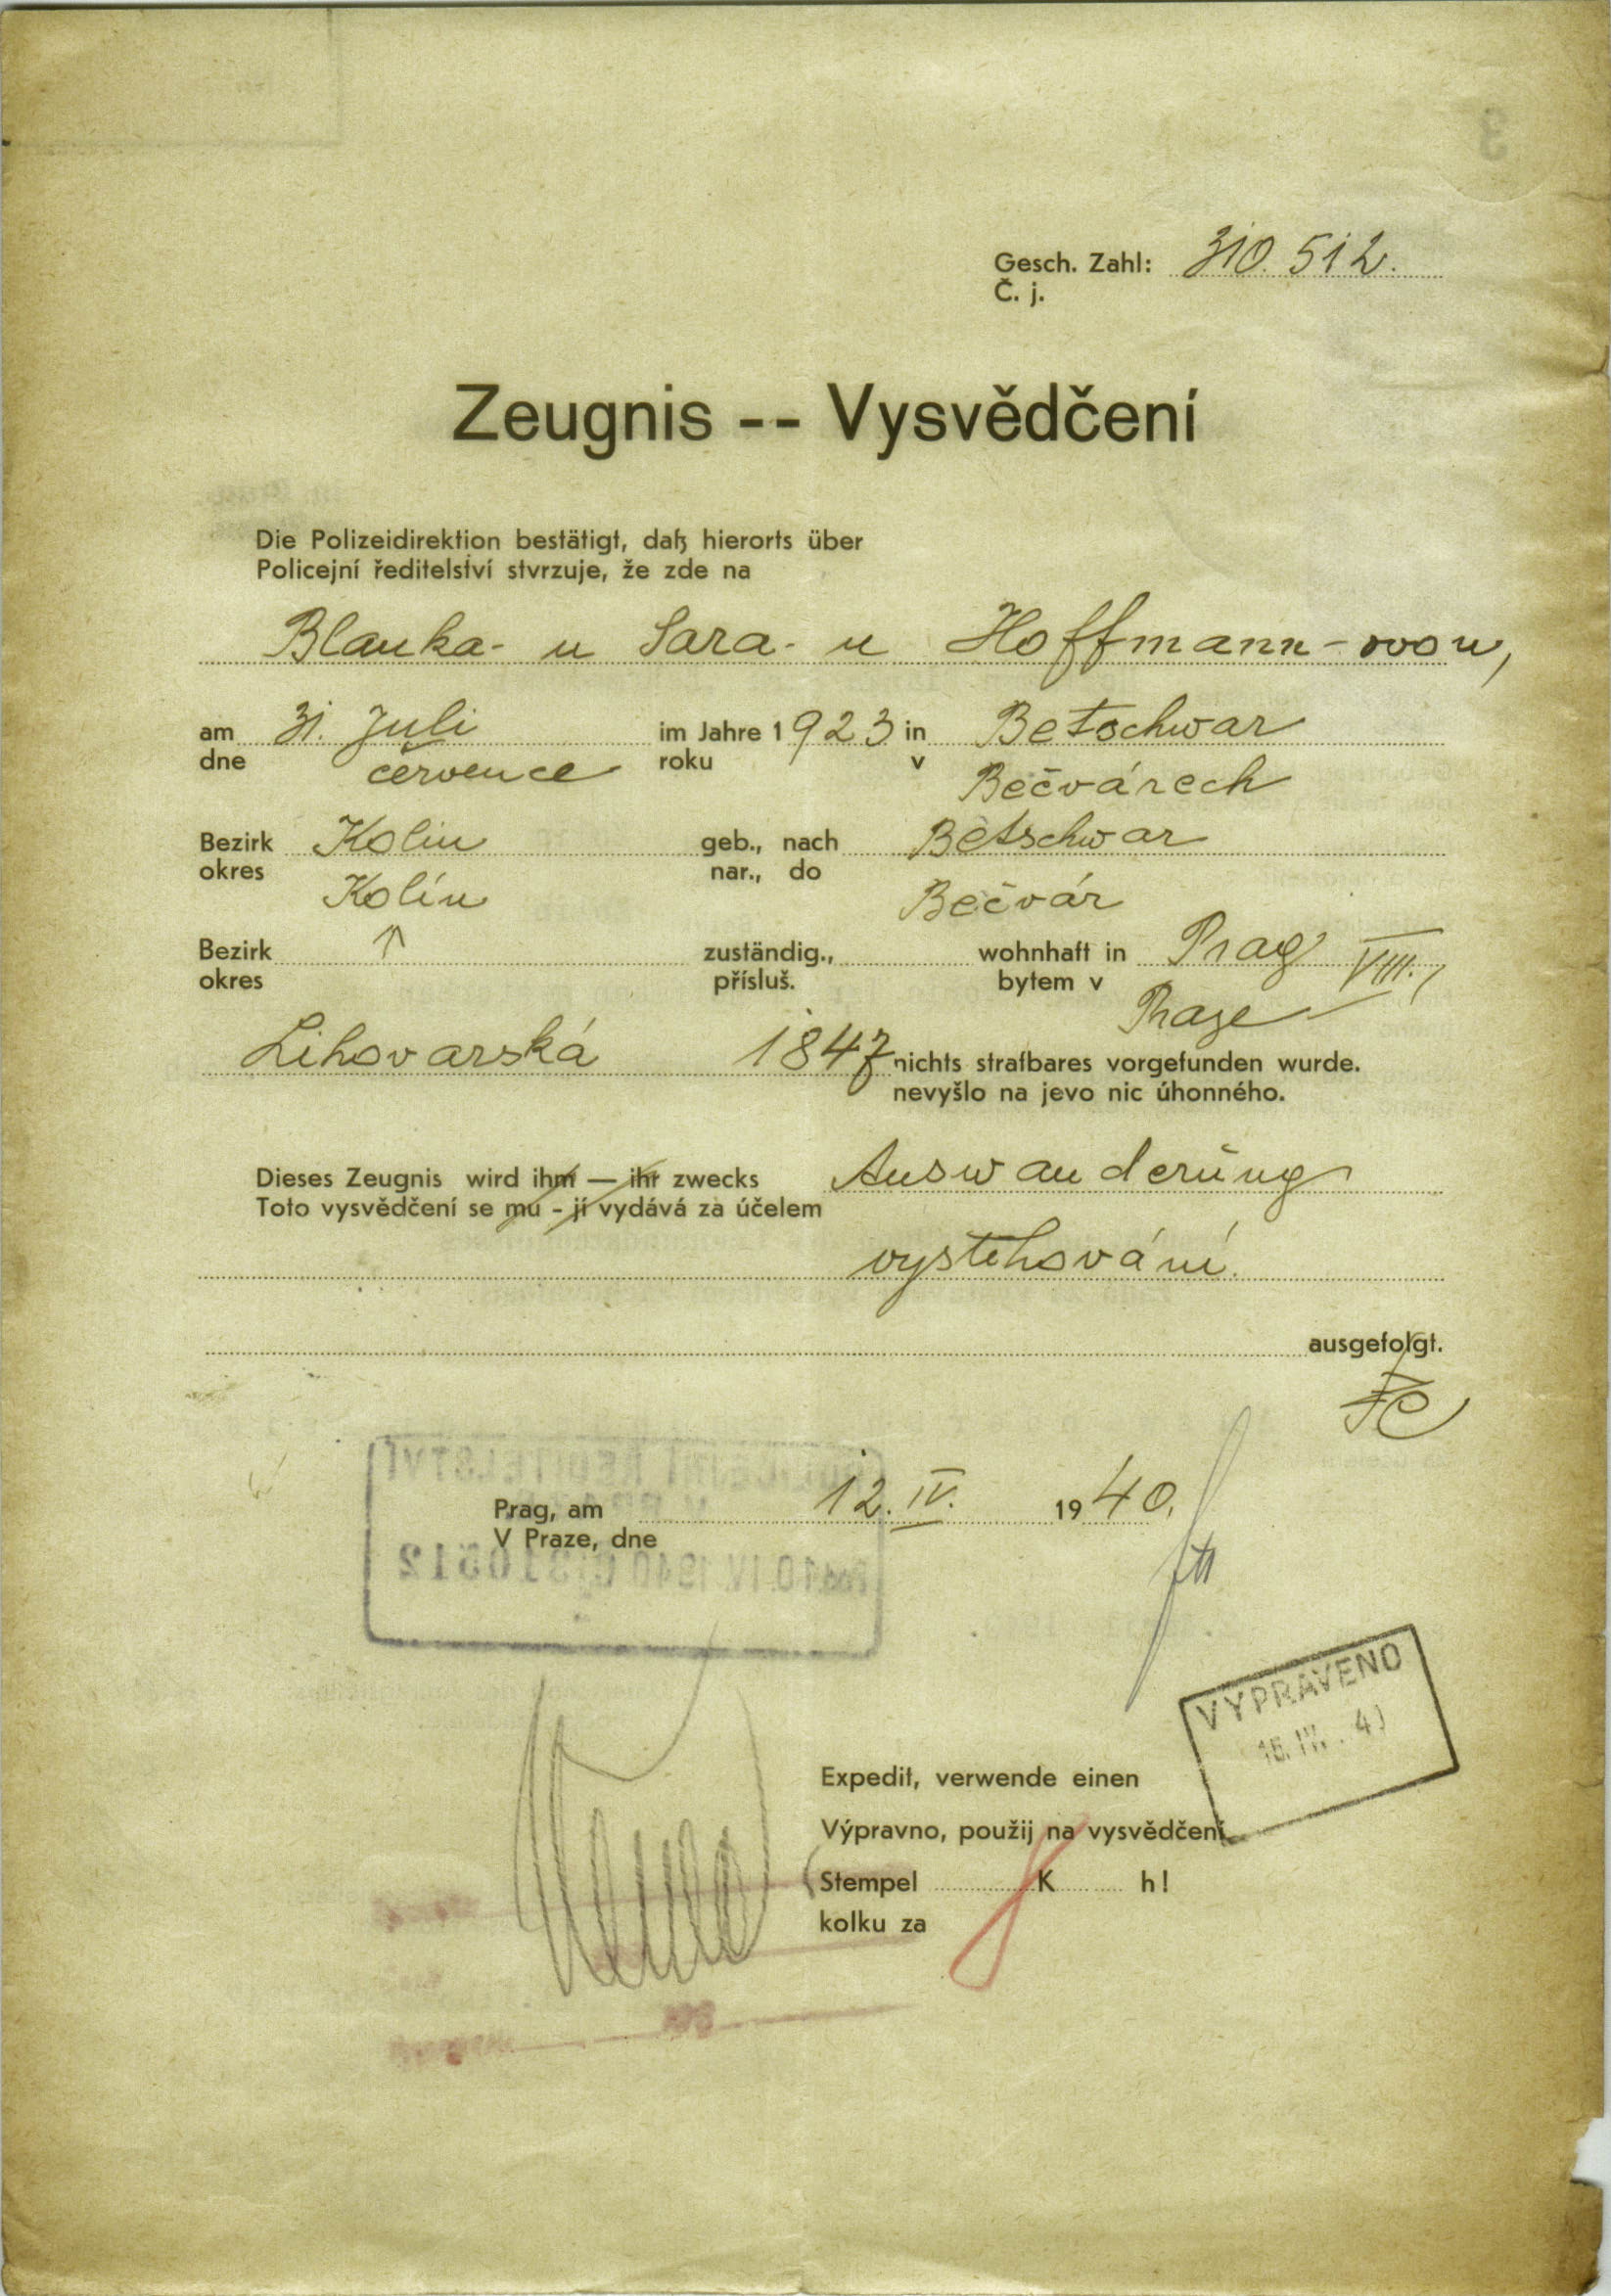 Gesch. Zahl: 310.512.
Č. j.
Zeugnis -- Vysvědčení
Die Polizeidirektion bestätigt, daß hierorts über
Policejní ředitelství stvrzuje, že zde na
Blanka-u Sara-u Hoffmann-ovou,
am 31. Juli im Jahre 1923 in Betschwar
dne července roku v Bečvárech
Bezirk Kolin geb., nach Betschwar
okres Kolín nar., do Bečvár
Bezirk ↑ zuständig., wohnhaft in Prag VIII.,
okres přísluš. bytem v Praze
Lihovarská 1847 nichts strafbares vorgefunden wurde.
nevyšlo na jevo nic úhonného.
Dieses Zeugnis wird ihm — ihr zwecks Auswanderung
Toto vysvědčení se mu - jí vydává za účelem
vystěhování.
ausgefolgt.
Prag, am 12. IV. 1940.
V Praze, dne
VYPRAVENO
Expedit, verwende einen
Výpravno, použij na vysvědčení
Stempel K h!
kolku za